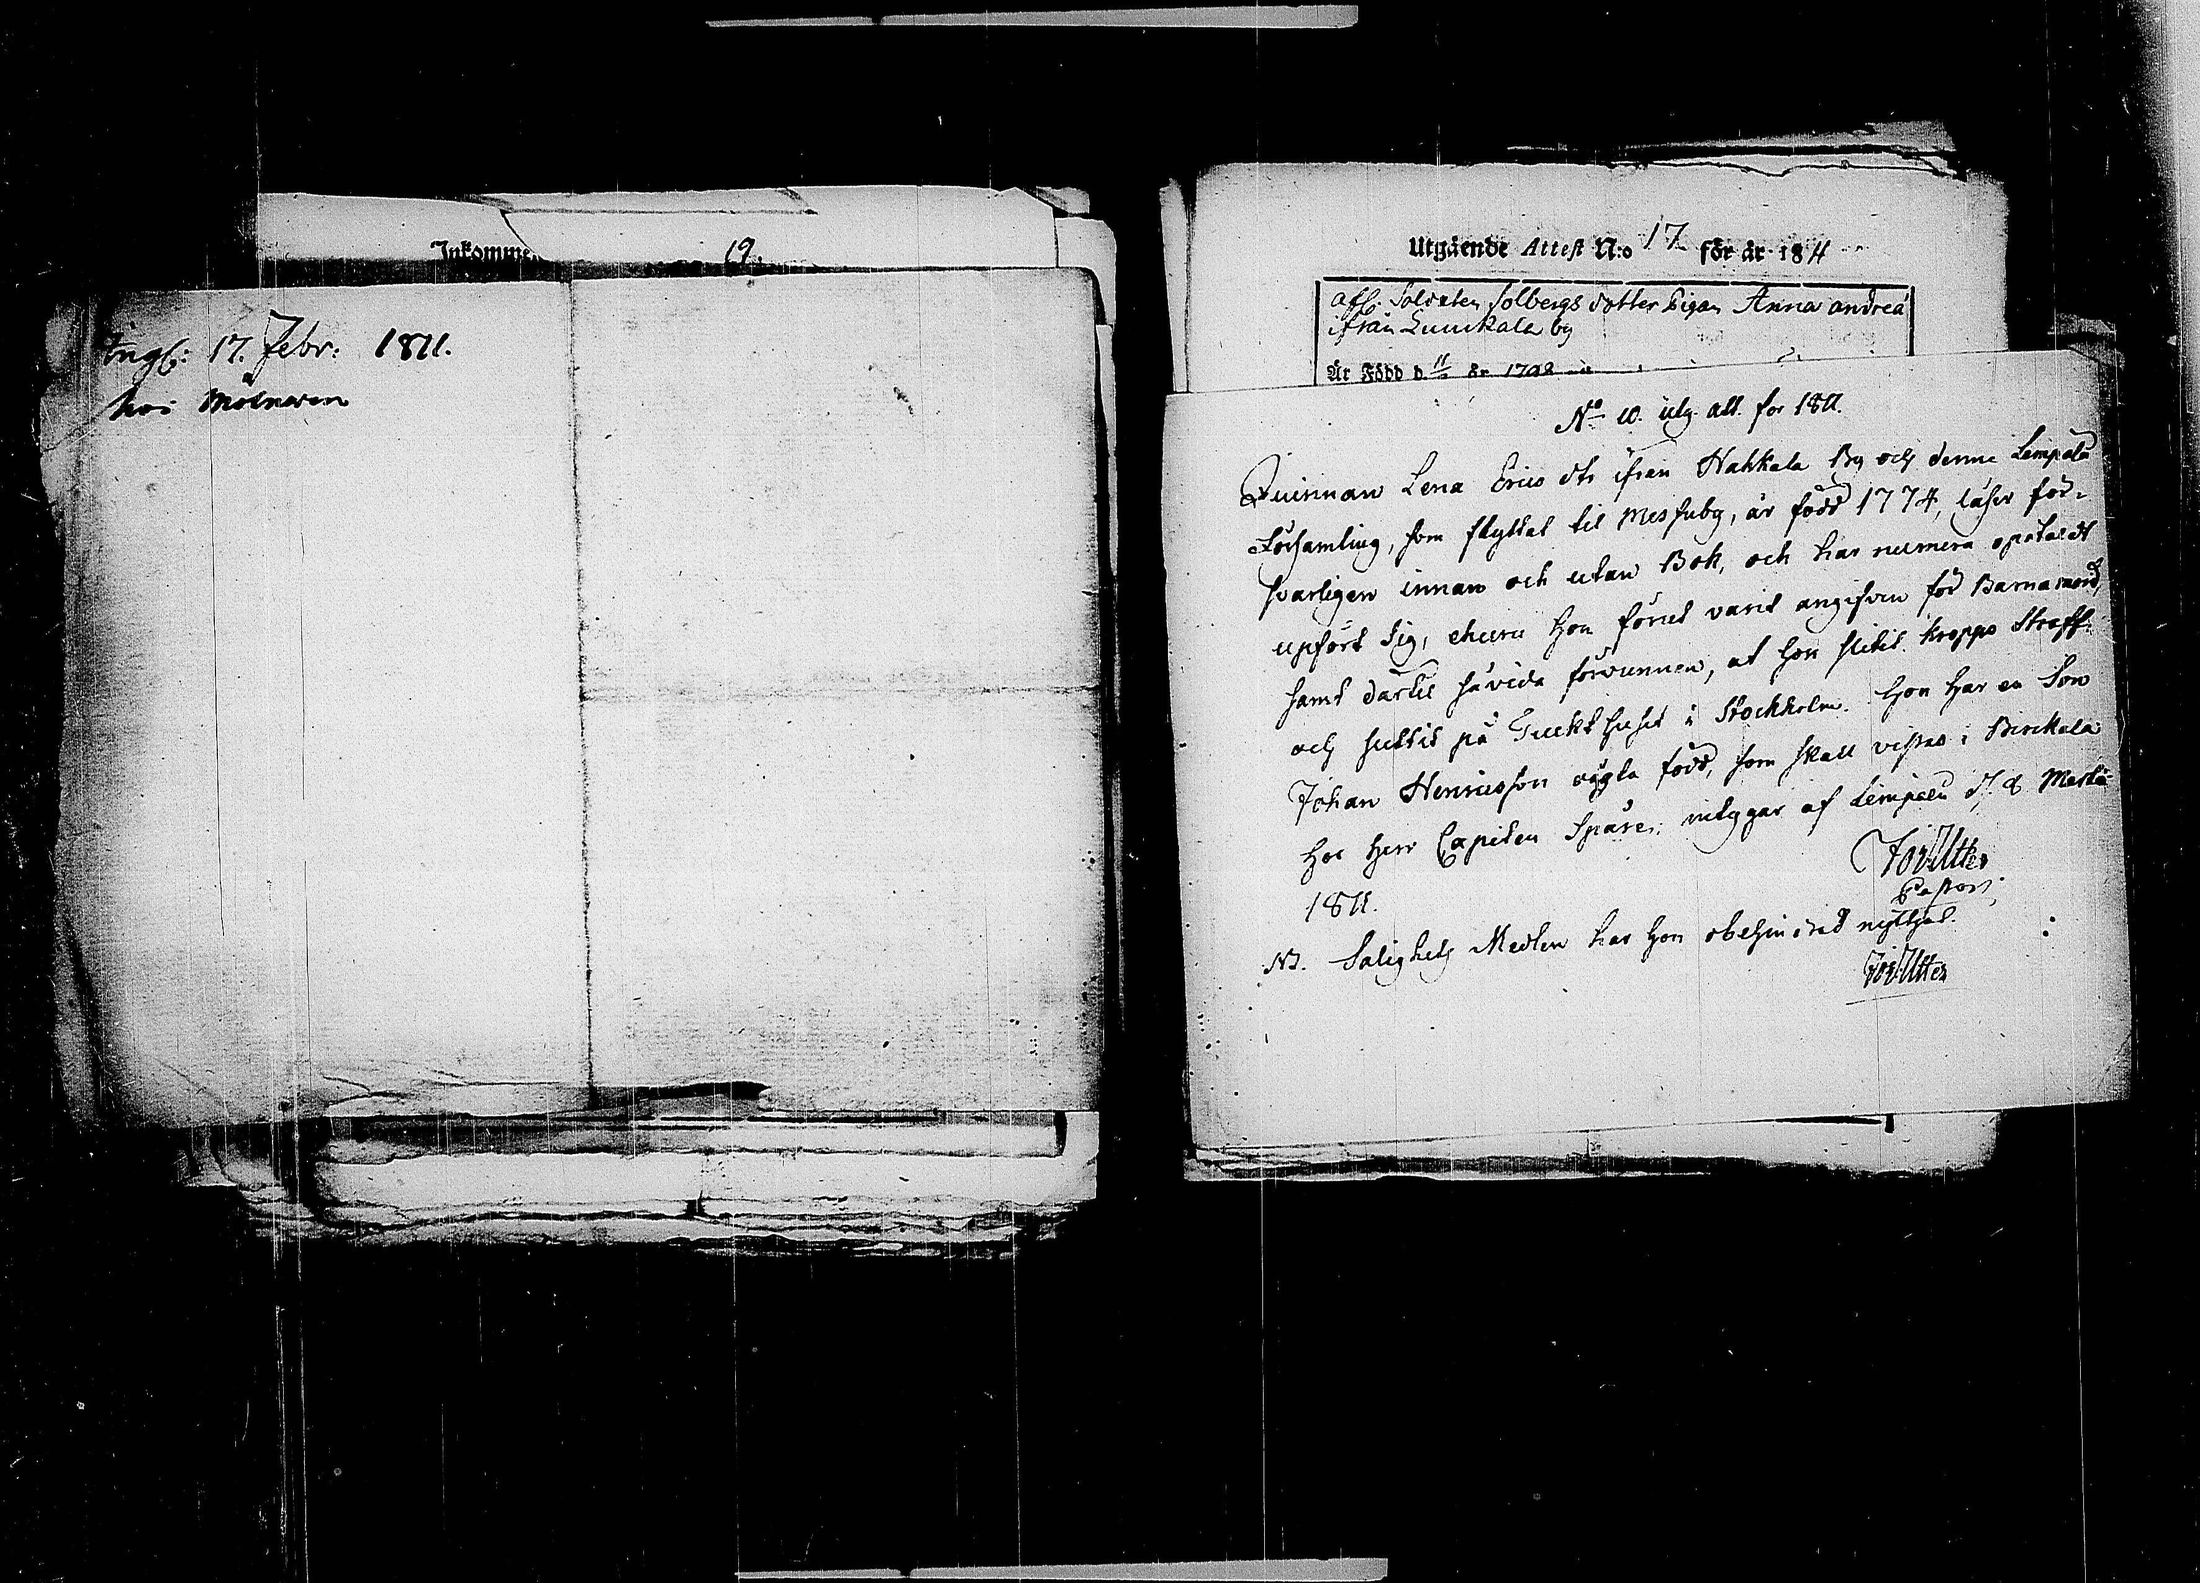 Inkomme 19.
17. Febr: 1811.
hos Mölnaren
Utgående Attest N:o 17 för år 1811
afl. Soldaten Solbergs dotter Pigan Anna andreæ
ifrån Luukala by
Är Född d. 11 år 1792
No 10. utg. att. för 1811.
Quinnan Lena Erics dtr ifrån Nakkala By och denne Lempälä
Församling, som flyttat til Messuby, är född 1774, läser för-
svarligen innan och utan Bok, och har numera opåtaldt
upfört sig, ehuru hon förut varit angifven för Barnamord,
samt dartil såvida förvunnen, at hon slitit kropps Straff
och suttit på Tuckthuset i Stockholm. Hon har en Son
Johan Henricsson oägta född, som skall vistas i Birckala
hos Herr Capiten Spåre; intygar af Lempälä d. 8 Martii
1811.
Pastor.
NB. Salighets Medlen har hon obehindrad nyttjat.